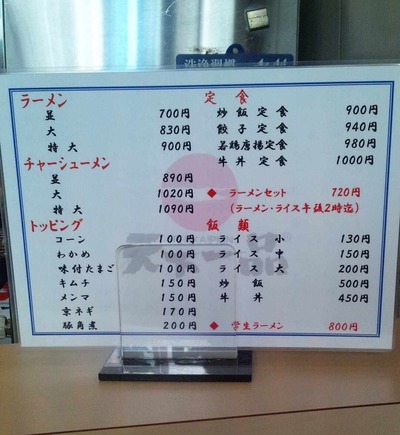 ラーメン
並 700円
大 830円
特大 900円
チャーシューメン
並 890円
大 1020円
特大 1090円
トッピング
コーン 100円
わかめ 100円
味付たまご 100円
キムチ 150円
メンマ 150円
京ネギ 170円
豚角煮 200円
定食
炒飯定食 900円
餃子定食 940円
若鶏唐揚定食 980円
牛丼定食 1000円
◆ ラーメンセット 720円
(ラーメン・ライス午後2時迄)
飯類
ライス 小 130円
ライス 中 150円
ライス 大 200円
炒飯 500円
牛丼 450円
◆ 学生ラーメン 800円
天下一品